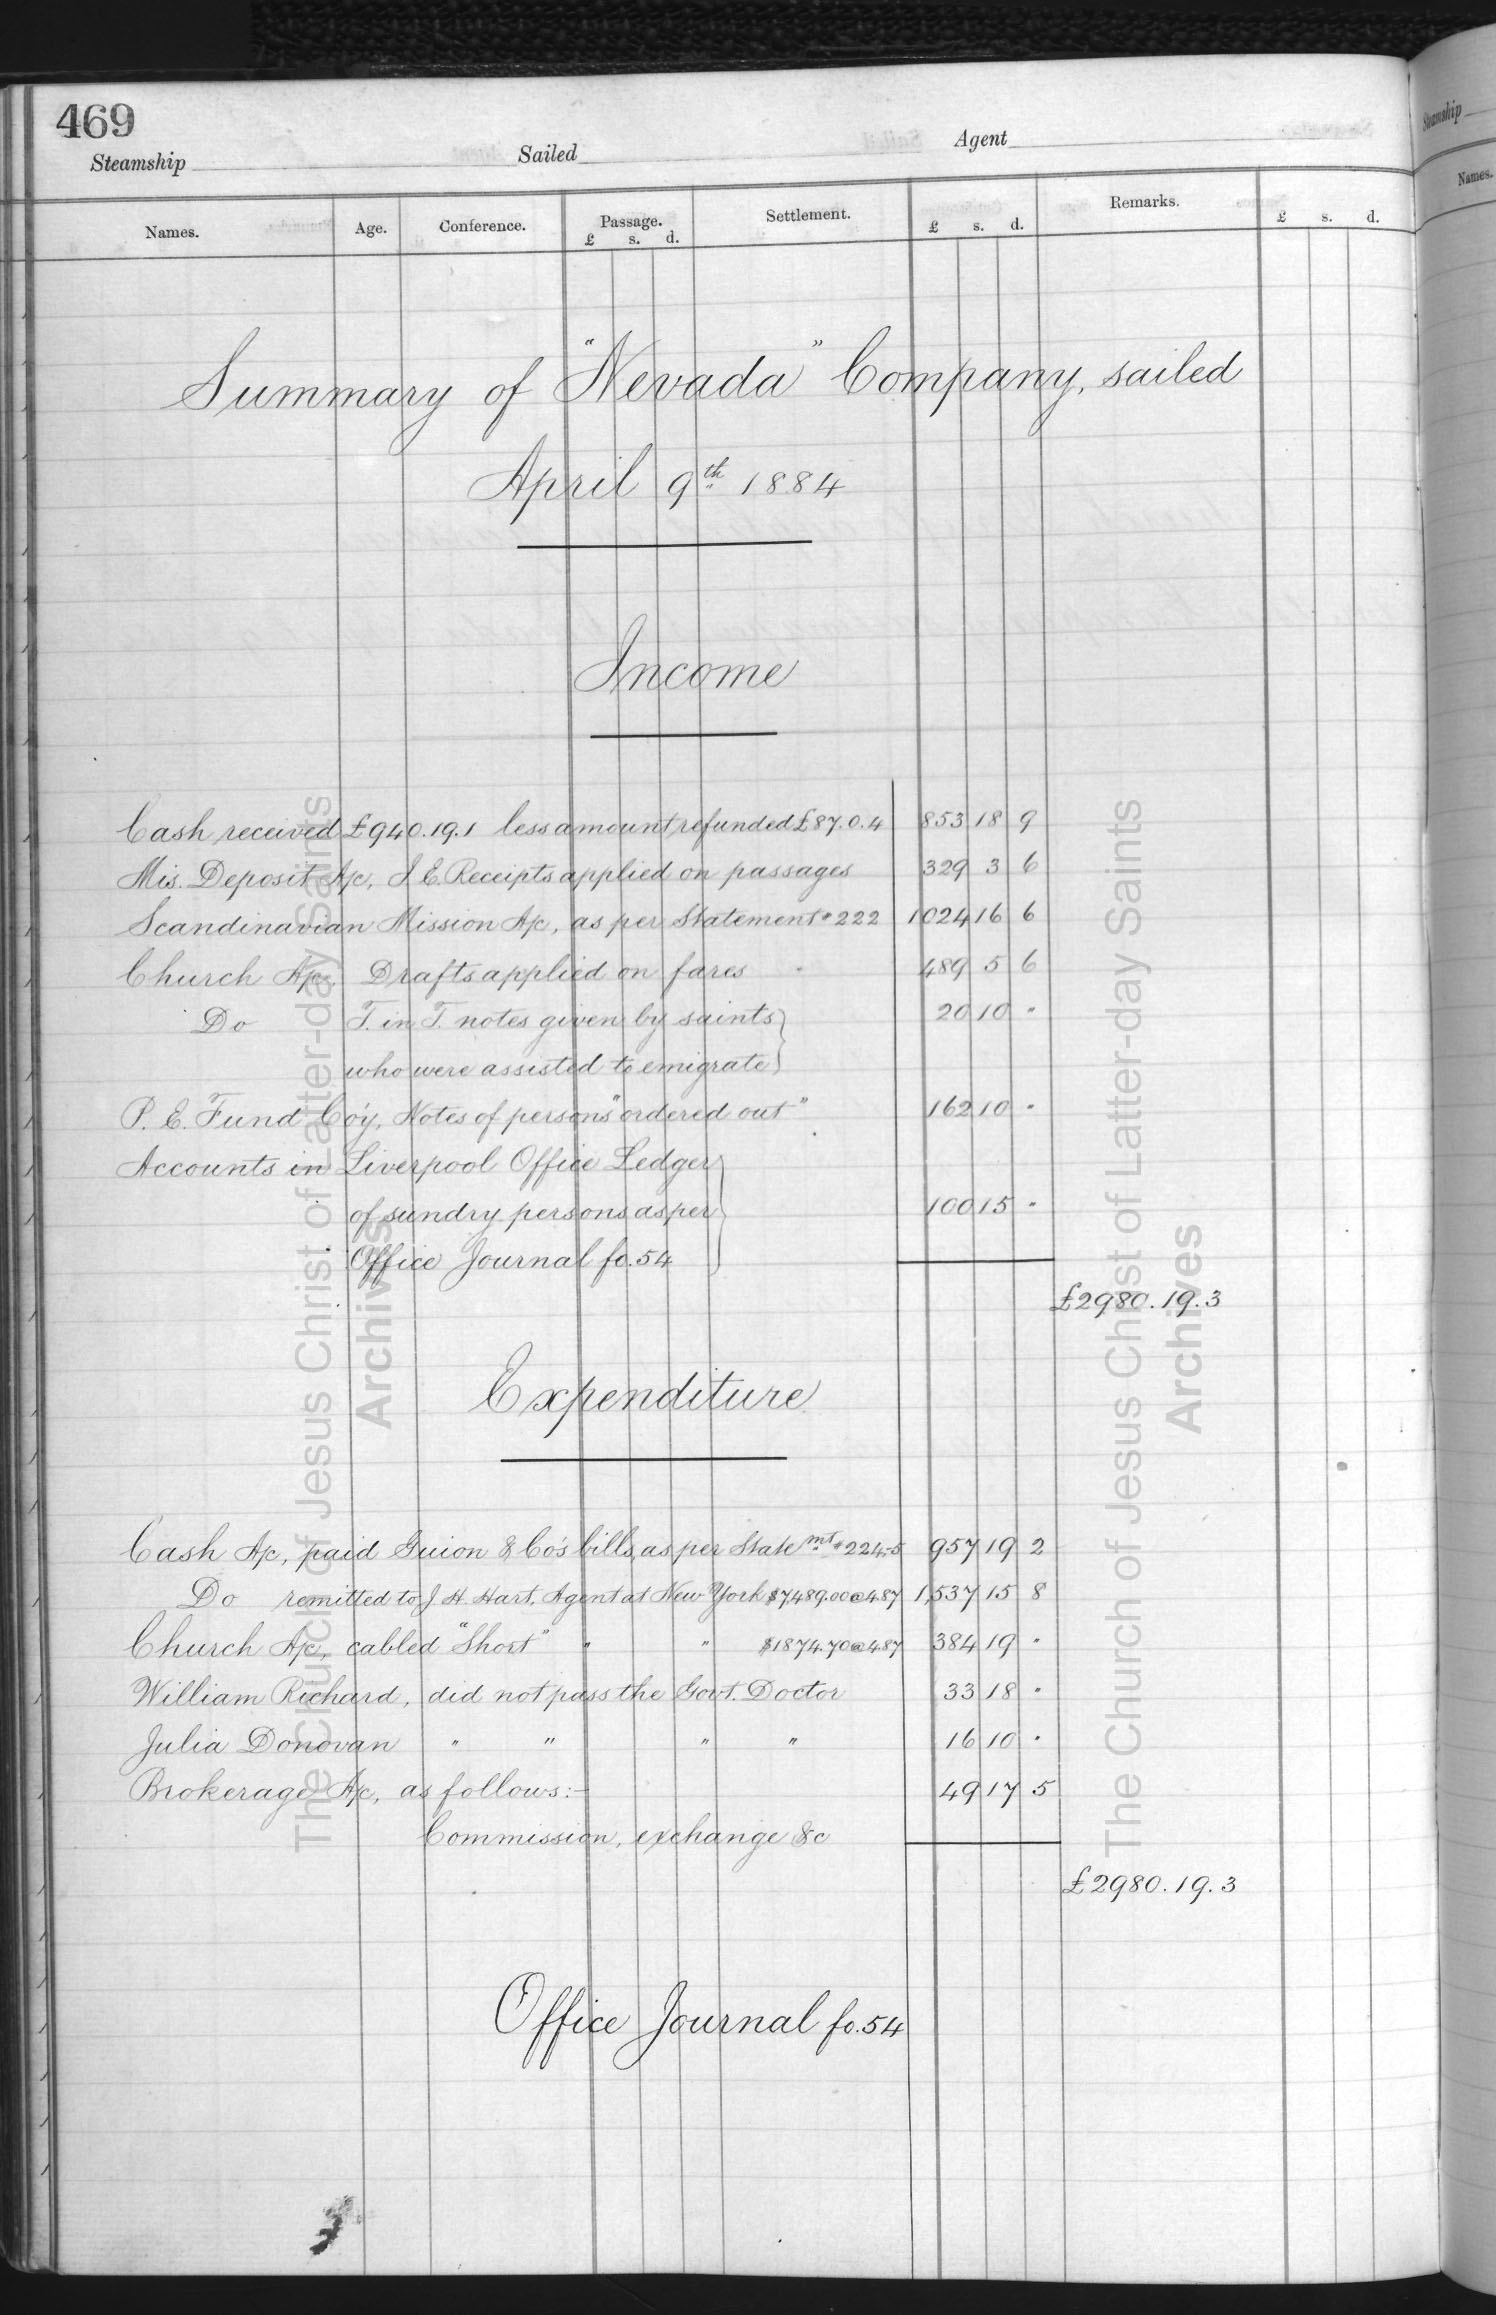 469
Steamship Sailed Agent
Names. Age. Conference. Passage. £ s. d. Settlement. £ s. d. Remarks. £ s. d.
Steamship
Names.
Summary of "Nevada" Company, sailed
April 9th 1884
Income
Cash received £940.19.1 less amount refunded £87.0.4 853 18 9
Mis. Deposit A/c, I.E. Receipts applied on passages 329 3 6
Scandinavian Mission A/c, as per Statement #222 1024 16 6
Church A/c. Drafts applied on fares 489 5 6
Do T. in T. notes given by saints 20 10 "
who were assisted to emigrate
P. E. Fund Co'y, Notes of persons "ordered out" 162 10 "
Accounts in Liverpool Office Ledger
of sundry persons as per 100 15 "
Office Journal fo. 54
£2980.19.3
Expenditure
Cash A/c, paid Guion & Co's bills, as per Statemt #224-5 957 19 2
Do remitted to J. H. Hart, Agent at New York $7,489.00 @ 487 1,537 15 8
Church A/c, cabled "Short" " " $1874.70 @ 487 384 19 "
William Richard, did not pass the Govt. Doctor 33 18 "
Julia Donovan " " " " 16 10 "
Brokerage A/c, as follows:- 49 17 5
Commission, exchange &c
£2980.19.3
Office Journal fo. 54
The Church of Jesus Christ of Latter-day Saints
Archives
The Church of Jesus Christ of Latter-day Saints
Archives